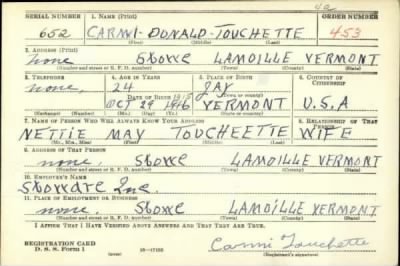 4a
SERIAL NUMBER 1. NAME (Print) ORDER NUMBER
652 CARMI-DONALD-TOUCHETTE 453
(First) (Middle) (Last)
2. ADDRESS (Print)
none Stowe LAMOILLE VERMONT
(Number and street or R. F. D. number) (Town) (County) (State)
3. TELEPHONE 4. AGE IN YEARS 5. PLACE OF BIRTH 6. COUNTRY OF CITIZENSHIP
none, 24 JAY
DATE OF BIRTH 1915
OCT 29 1916 VERMONT U.S.A
(Exchange) (Number) (Mo.) (Day) (Yr.) (State or country)
7. NAME OF PERSON WHO WILL ALWAYS KNOW YOUR ADDRESS 8. RELATIONSHIP OF THAT PERSON
NETTIE MAY TOUCHEETTE WIFE
(Mr., Mrs., Miss) (First) (Middle) (Last)
9. ADDRESS OF THAT PERSON
none, Stowe LAMOILLE VERMONT
(Number and street or R. F. D. number) (Town) (County) (State)
10. EMPLOYER'S NAME
Stoware Inc.
11. PLACE OF EMPLOYMENT OR BUSINESS
none, Stowe LAMOILLE VERMONT
(Number and street or R. F. D. number) (Town) (County) (State)
I AFFIRM THAT I HAVE VERIFIED ABOVE ANSWERS AND THAT THEY ARE TRUE.
REGISTRATION CARD
D. S. S. Form 1 (over) 16—17105 Carmi Touchette
(Registrant's signature)